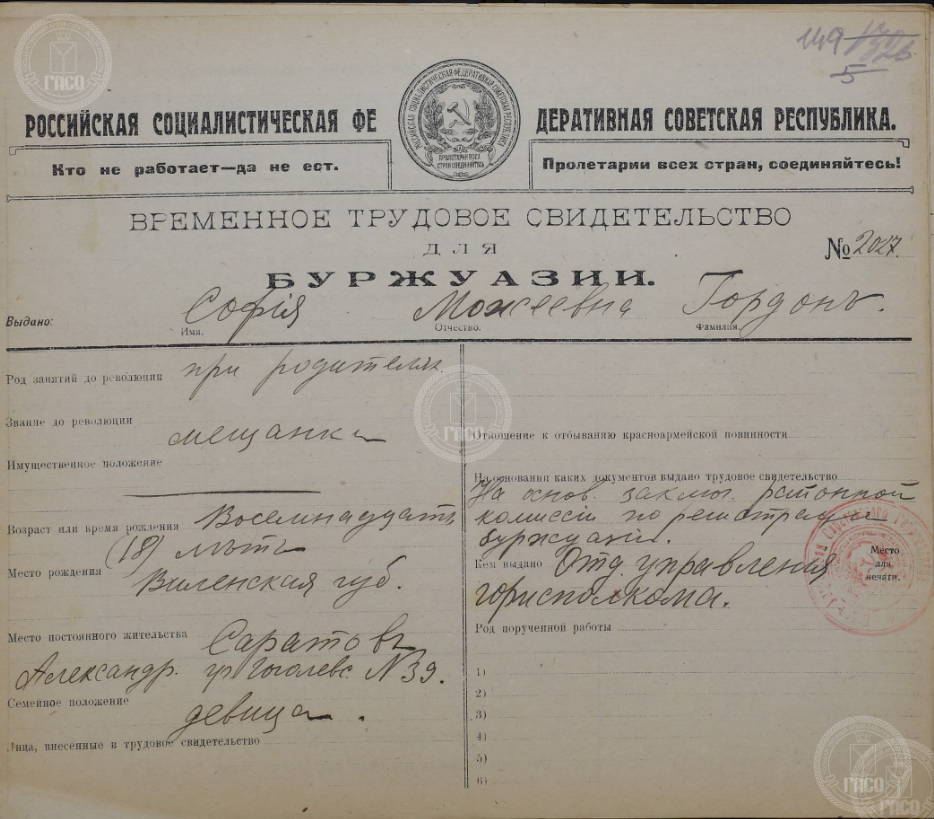 149
5
РОССИЙСКАЯ СОЦИАЛИСТИЧЕСКАЯ ФЕДЕРАТИВНАЯ СОВЕТСКАЯ РЕСПУБЛИКА.
Кто не работает—да не ест.
Пролетарии всех стран, соединяйтесь!
ВРЕМЕННОЕ ТРУДОВОЕ СВИДЕТЕЛЬСТВО
ДЛЯ
№ 2027.
БУРЖУАЗИИ.
Выдано: Софія Можеевна Гордонъ.
Имя. Отчество. Фамилия.
Род занятий до революции при родителях.
Звание до революции мещанка
Имущественное положение
Возраст или время рождения Восемнадцать
(18) лѣтъ
Место рождения Виленская губ.
Место постоянного жительства Саратовъ
Александр. Гоголевс. N 39.
Семейное положение девица.
Лица, внесенные в трудовое свидетельство
Отношение к отбыванию красноармейской повинности
На основании каких документов выдано трудовое свидетельство
На основ. районной
комиссіи по регистрации
буржуазіи.
Кем выдано Отд. управления
горисполкома.
Место
для
печати.
Род порученной работы
1)
2)
3)
4)
5)
6)
ГПСО
ГПСО
ГПСО
ГПСО